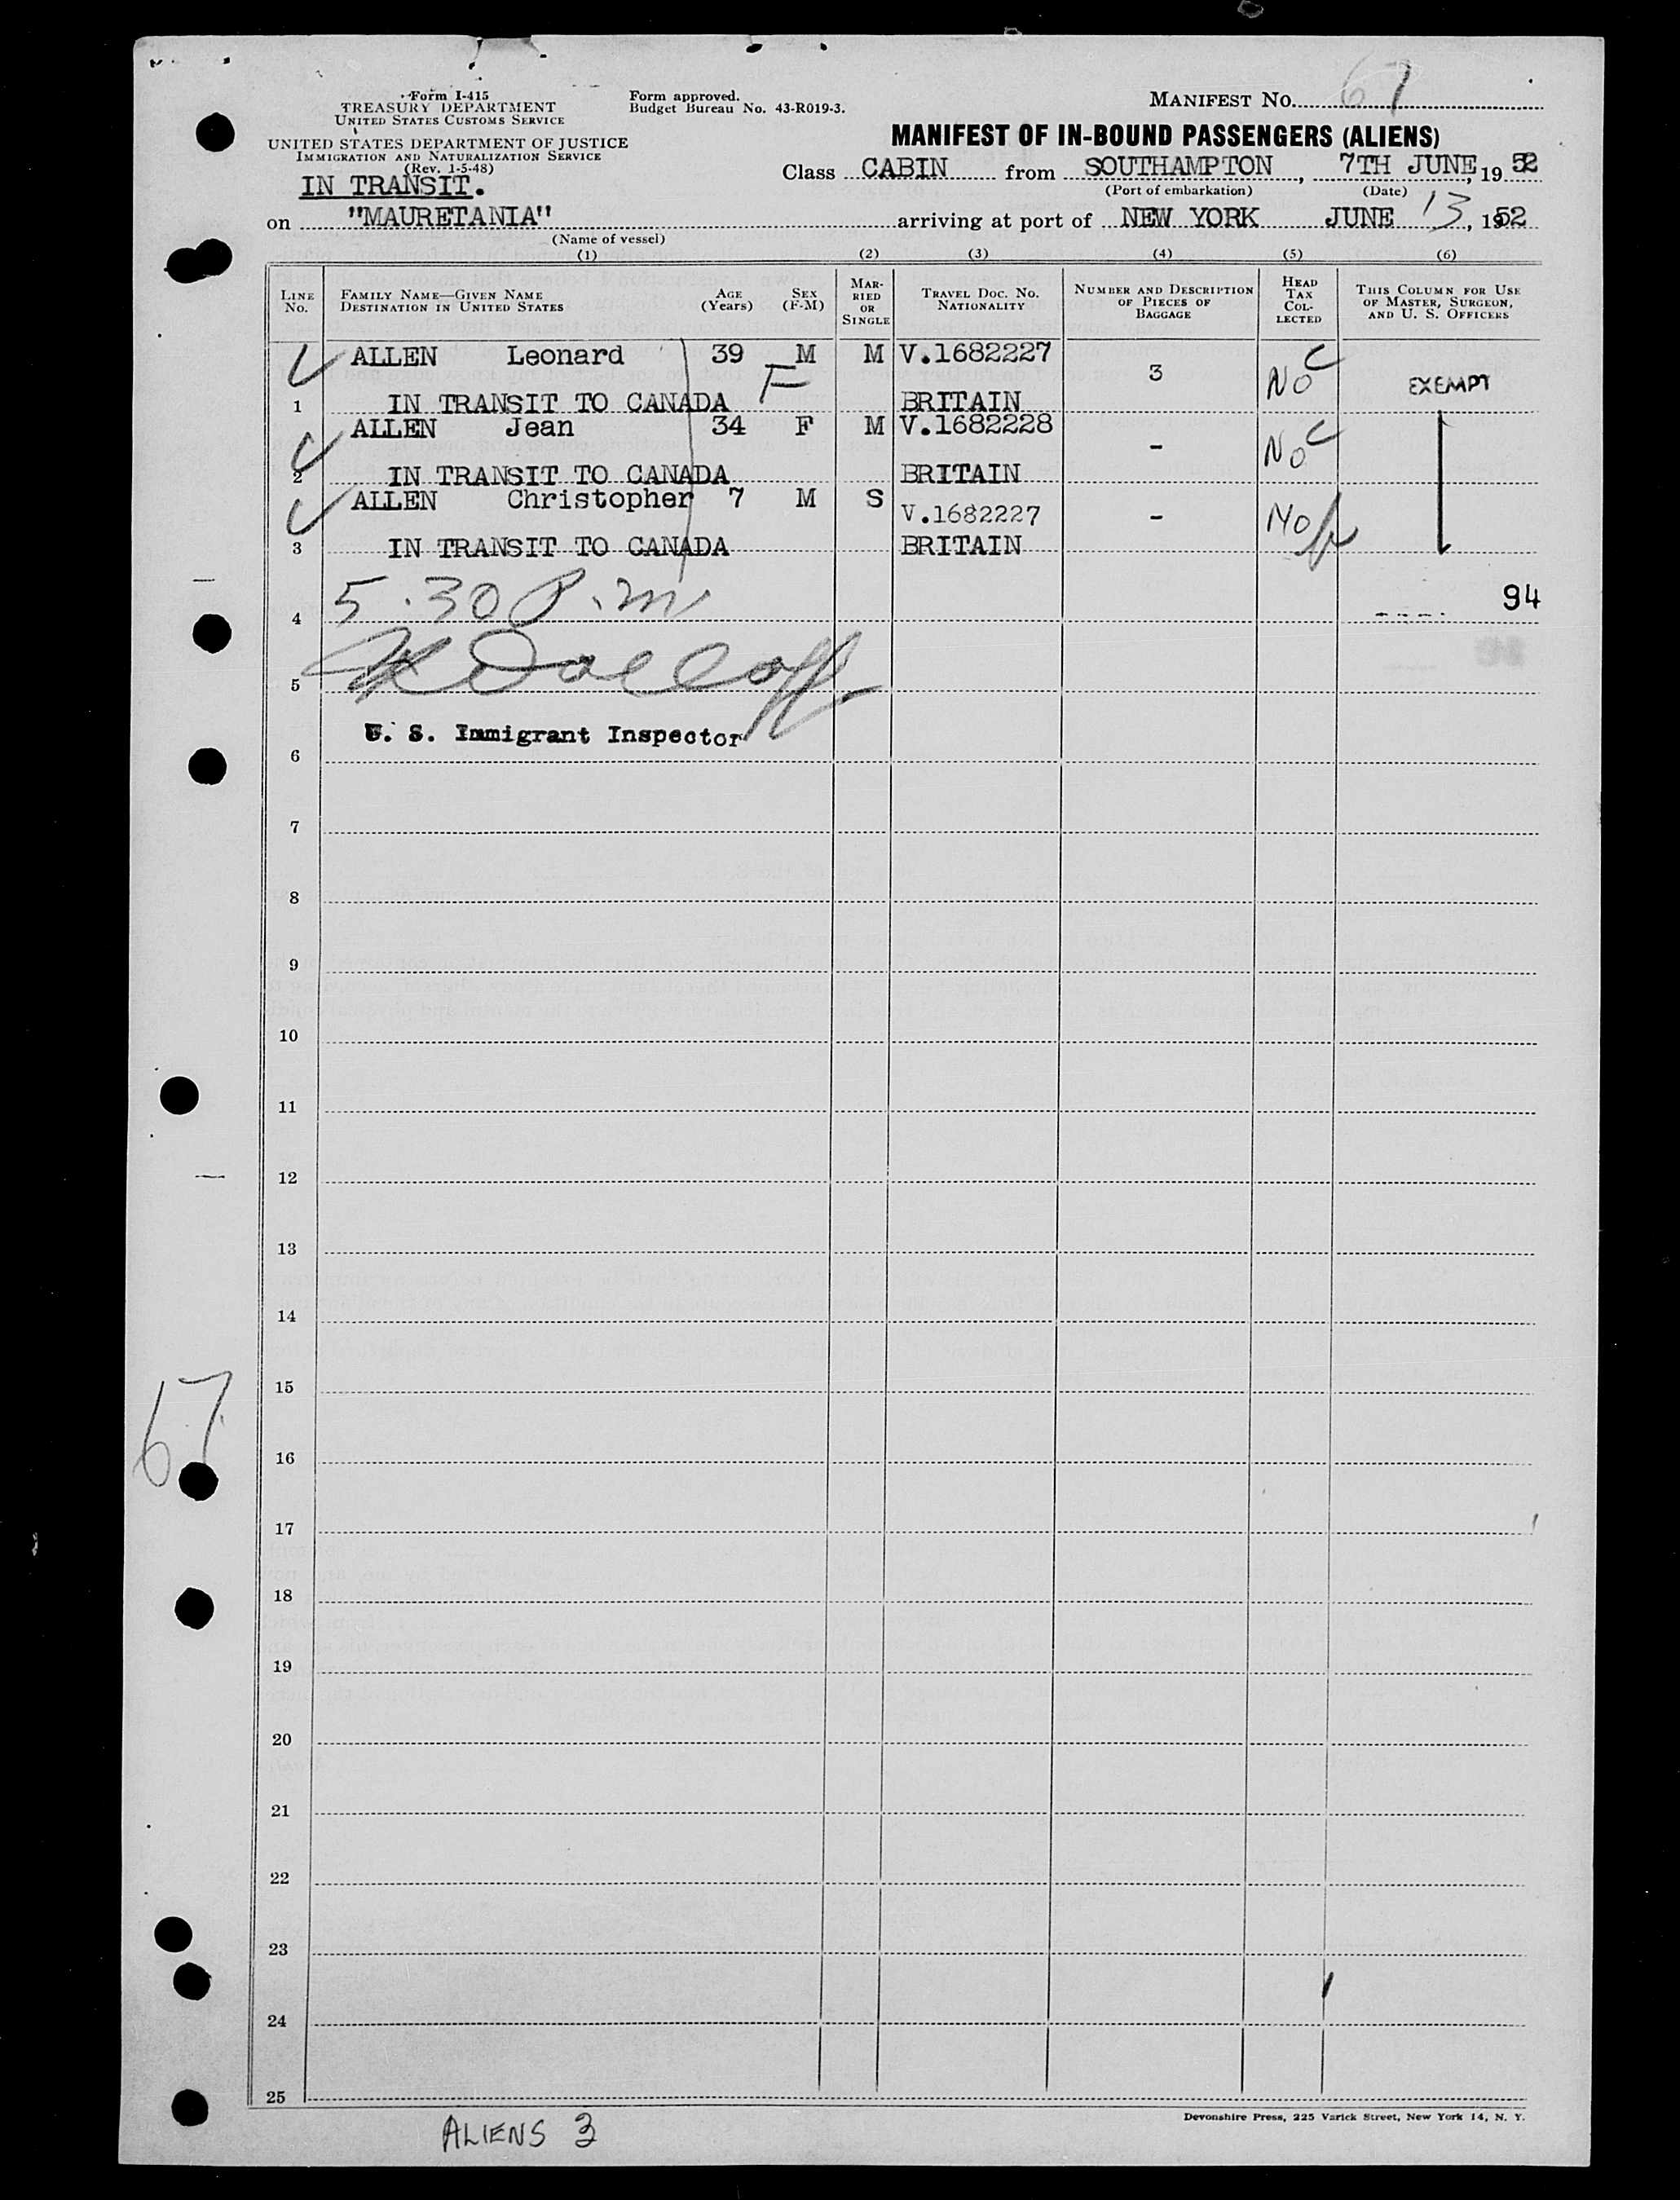 Form I-415
TREASURY DEPARTMENT
UNITED STATES CUSTOMS SERVICE
UNITED STATES DEPARTMENT OF JUSTICE
IMMIGRATION AND NATURALIZATION SERVICE
(Rev. 1-5-48)
IN TRANSIT.
Form approved.
Budget Bureau No. 43-R019-3.
MANIFEST NO. 67
MANIFEST OF IN-BOUND PASSENGERS (ALIENS)
Class CABIN from SOUTHAMPTON, 7TH JUNE, 1952
(Port of embarkation) (Date)
on "MAURETANIA" arriving at port of NEW YORK JUNE 13, 1952
(Name of vessel)
(1) (2) (3) (4) (5) (6)
LINE NO. FAMILY NAME—GIVEN NAME DESTINATION IN UNITED STATES AGE (Years) SEX (F-M) MARRIED OR SINGLE TRAVEL DOC. NO. NATIONALITY NUMBER AND DESCRIPTION OF PIECES OF BAGGAGE HEAD TAX COLLECTED THIS COLUMN FOR USE OF MASTER, SURGEON, AND U. S. OFFICERS
ALLEN Leonard 39 M M V.1682227 3 No C EXEMPT
F
1 IN TRANSIT TO CANADA BRITAIN
ALLEN Jean 34 F M V.1682228 - No C
2 IN TRANSIT TO CANADA BRITAIN
ALLEN Christopher 7 M S V.1682227 - No
3 IN TRANSIT TO CANADA BRITAIN
5.30 P.m 94
4
5
U. S. Immigrant Inspector
6
7
8
9
10
11
12
13
14
15
67
16
17
18
19
20
21
22
23
24
25
Devonshire Press, 225 Varick Street, New York 14, N. Y.
ALIENS 3